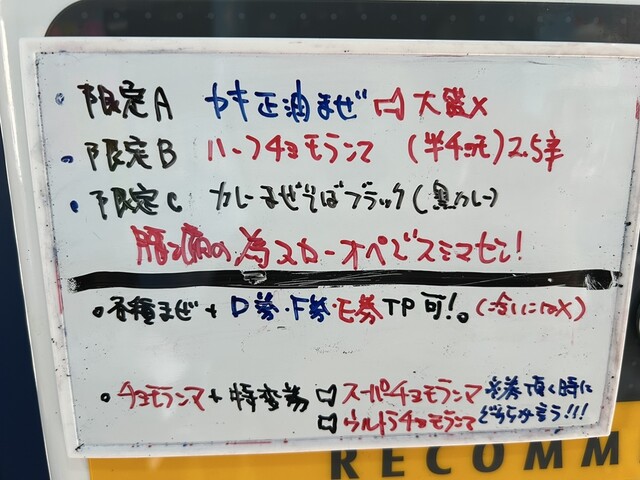 ・限定A カキ正油まぜ 大盛X
・限定B ハーフチョモランマ (半チョモ)2.5辛
・限定C カレーまぜそばブラック(黒カレー)
腰痛の為スローオペでスミマセン!
・各種まぜ+D券・F券・E券TP可!。(冷しはX)
・チョモランマ+特変券 □スーパーチョモランマ 券頂く時に
□ウルトラチョモランマ どちらか言う!!!
RECOMM